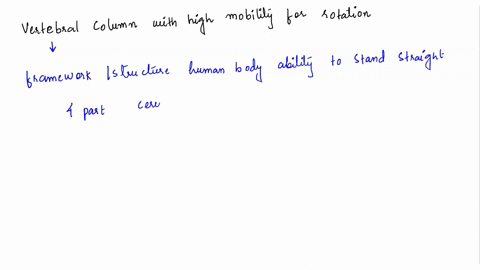 Vertebral column with high mobility for rotation
framework / structure human body ability to stand straight
4 part cerv